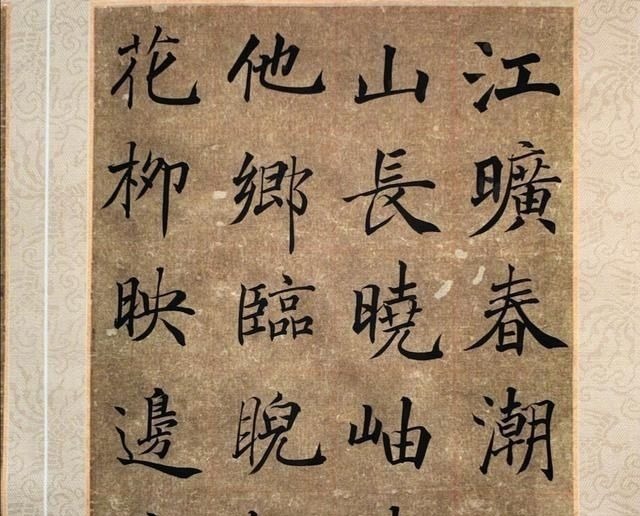 江曠春潮
山長曉岫
他鄉臨睨
花柳映邊